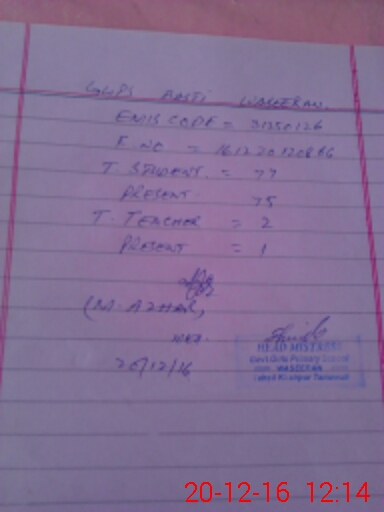 GGPS BASTI WASEERAN.
EMIS CODE = 31250126
T. STUDENT. = 77
PRESENT. 75
T. TEACHER = 2
PRESENT = 1
(M. AZHAR)
20/12/16
HEAD MISTRESS
Govt. Girls Primary School
WASEERAN
20-12-16 12:14